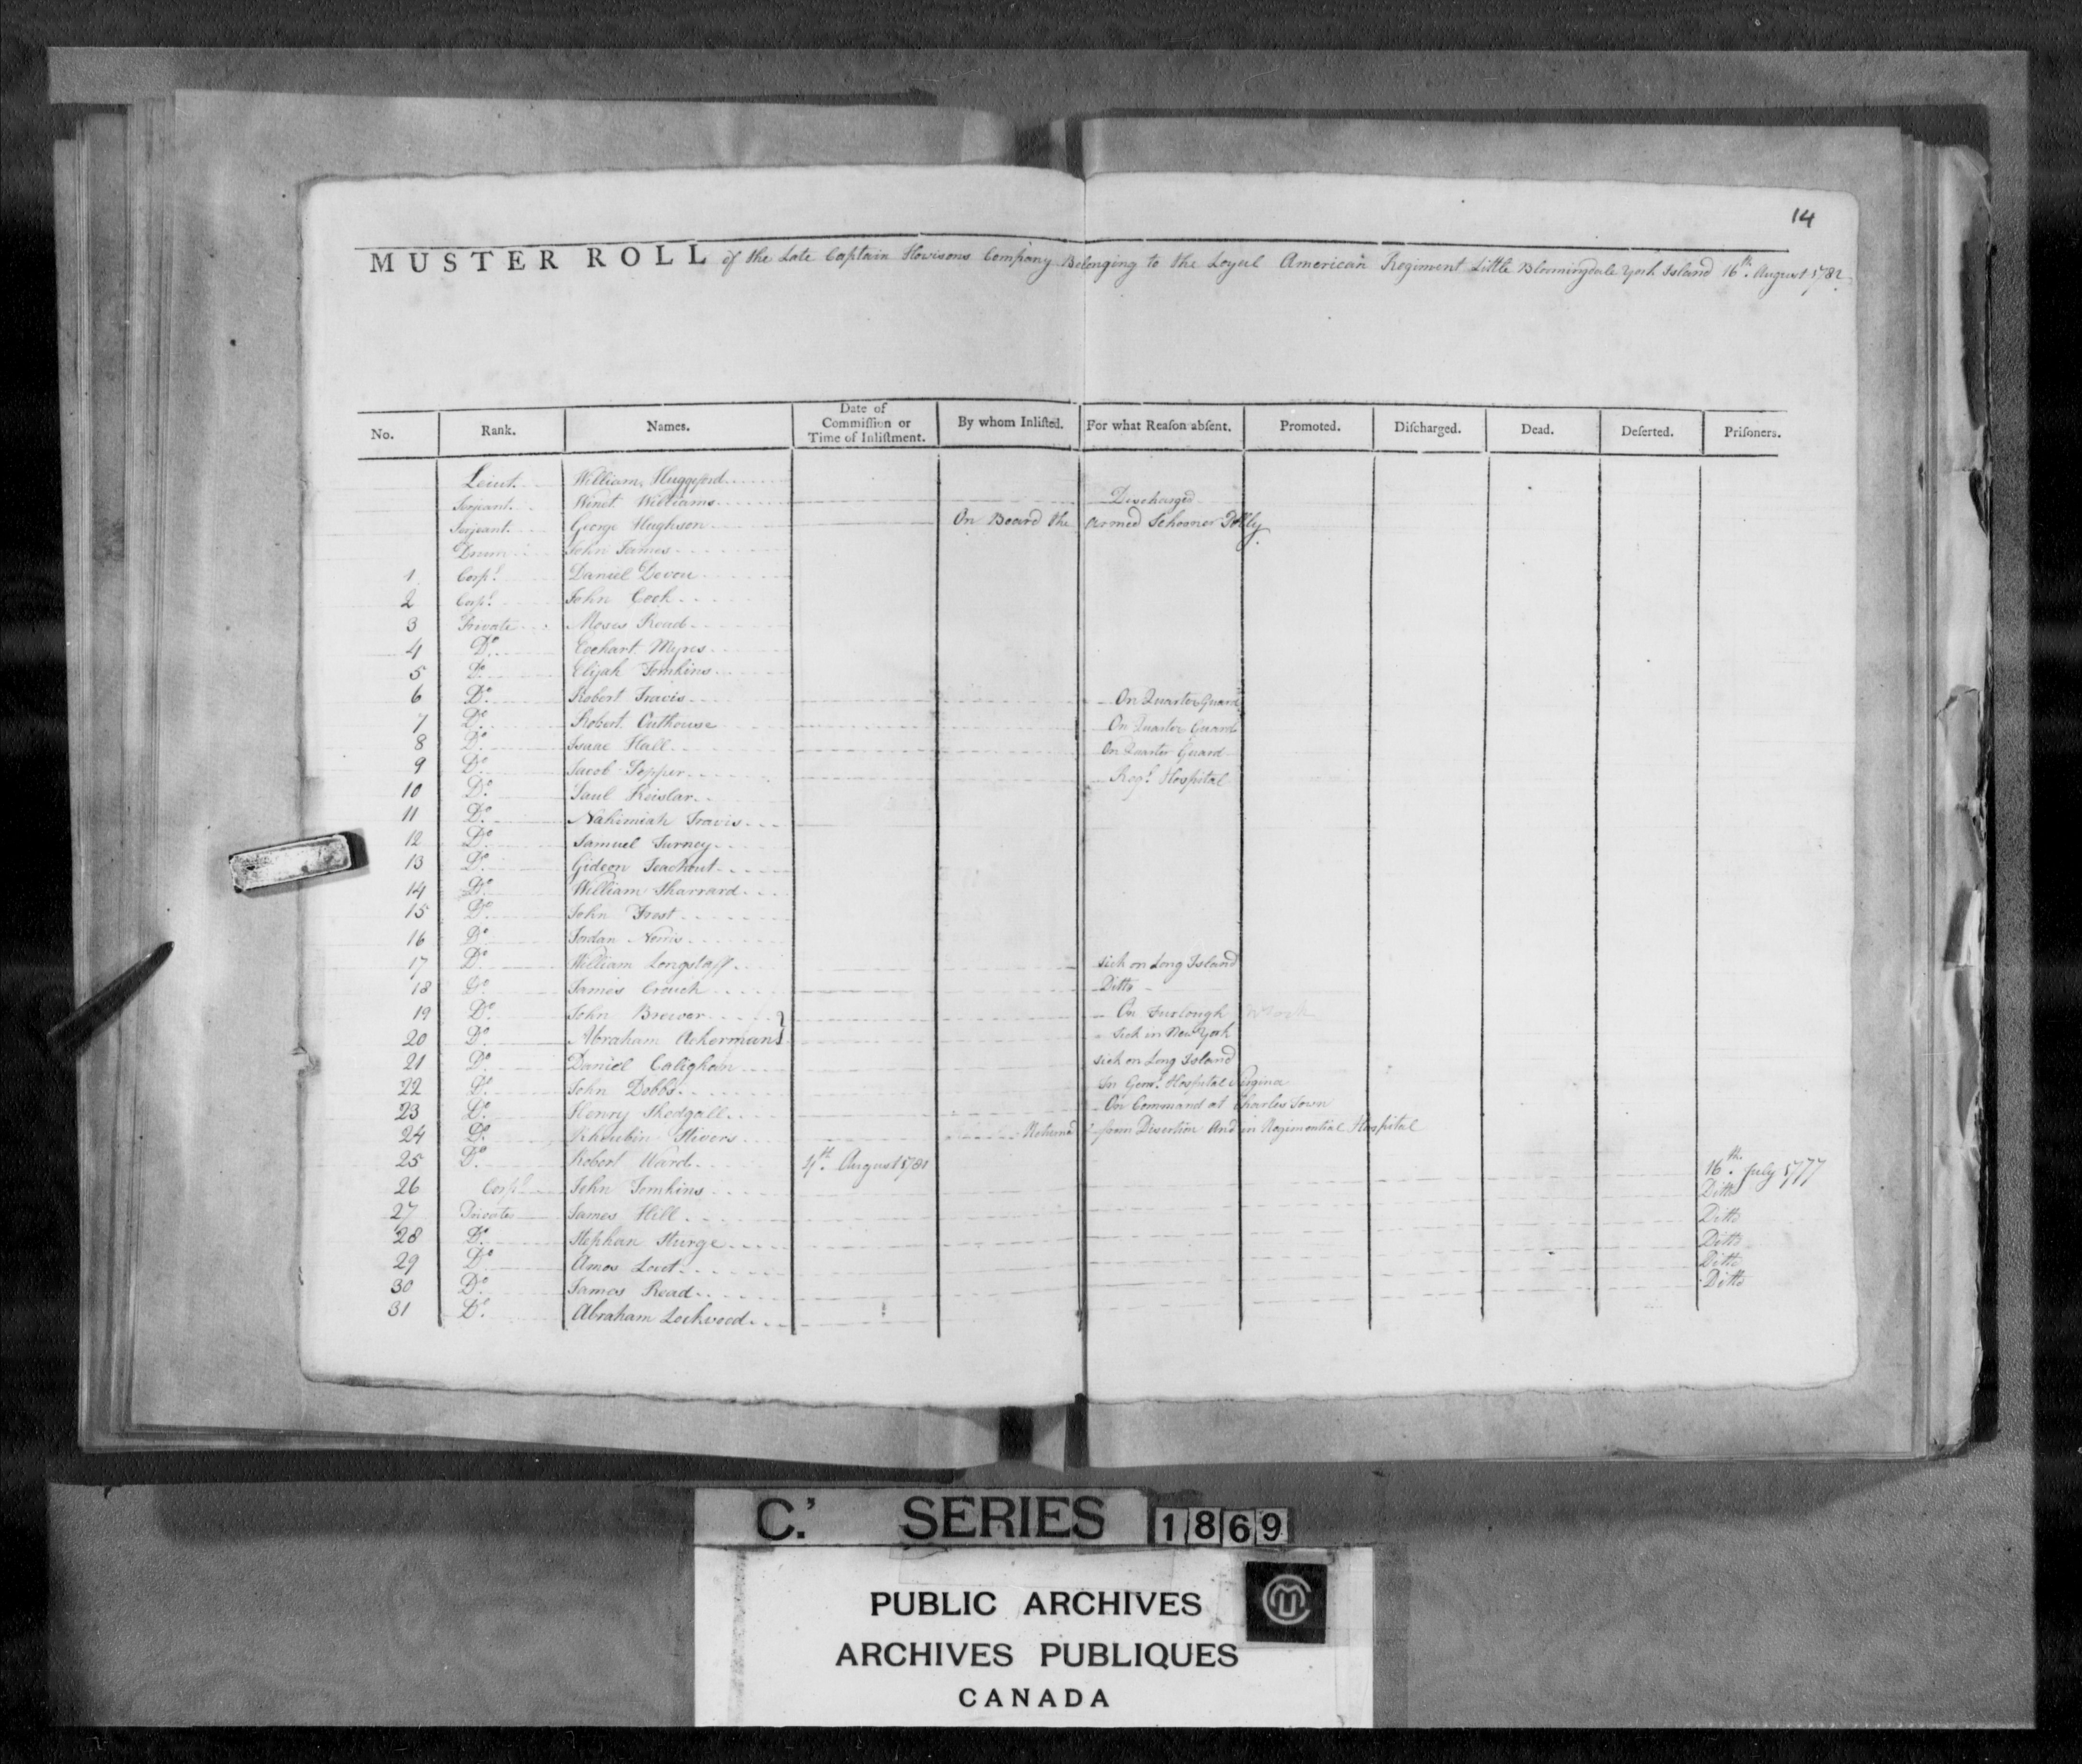 14
MUSTER ROLL of the Late Captain Howisons Company Belonging to the Loyal American Regiment Little Bloomingdale York Island 16th. August 1782
No. Rank. Names. Date of Commiſſion or Time of Inliſtment. By whom Inliſted. For what Reaſon abſent. Promoted. Diſcharged. Dead. Deſerted. Priſoners.
Leiut. William Huggeford
Serjeant. Williams Discharged
Serjeant. George Hughson On Board the armed Schooner Polly
Drum John James
1 Corpl. Daniel Devou
2 Corpl. John Cook
3 Private Moses Read
4 Do. Cockart Myres
5 Do. Elijah Tomkins
6 Do. Robert Travis On Quarter Guard
7 Do. Robert Outhouse On Quarter Guard
8 Do. Isaac Hall On Quarter Guard
9 Do. Jacob Topper Regl. Hospital
10 Do. Paul Keislar
11 Do. Nahimiah Travis
12 Do. Samuel Turney
13 Do. Gideon Teachout
14 Do. William Sharrard
15 Do. John Frost
16 Do. Jordan Norris
17 Do. William Longstaff sick on Long Island
18 Do. James Crouch Ditto
19 Do. John Brewer On Furlough
20 Do. Abraham Ackerman sick in New York
21 Do. Daniel Calighan sick on Long Island
22 Do. John Dobbs In Genl. Hospital Virginia
23 Do. Henry Shedgall On Command at Charles Town
24 Do. Stivers Returnd from Disertion And in Regimential Hospital
25 Do. Robert Ward 4th. August 1781
26 Corpl. John Tomkins 16th. July 1777
27 Private James Hill Ditto
28 Do. Stephan Sturge Ditto
29 Do. Amos Lovet Ditto
30 Do. James Read Ditto
31 Do. Abraham Lockwood Ditto
C.' SERIES 1869
PUBLIC ARCHIVES
ARCHIVES PUBLIQUES
CANADA